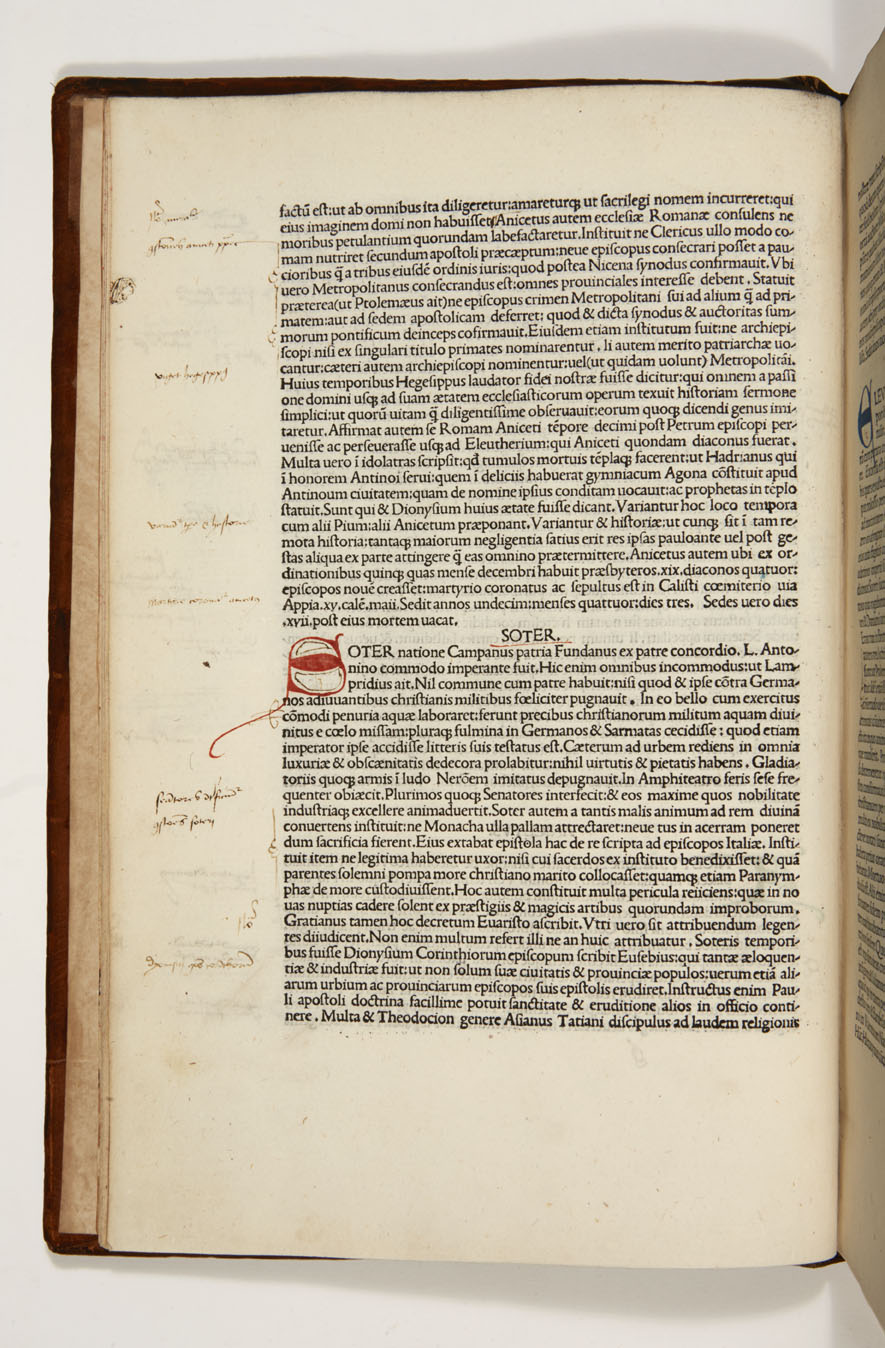 factū eſt:ut ab omnibus ita diligeretur:amareturqꝫ ut ſacrilegi nomem incurreret:qui
eius imaginem domi non habuiſſet Anicetus autem eccleſiæ Romanæ conſulens ne
moribus petulantium quorundam labefactaretur.Inſtituit ne Clericus ullo modo co-
mam nutriret ſecundum apoſtoli præcæptum:neue epiſcopus conſecrari poſſet a pau-
cioribus q̄ a tribus eiuſdē ordinis iuris:quod poſtea Nicena ſynodus confirmauit.Vbi
uero Metropolitanus conſecrandus eſt:omnes prouinciales intereſſe debent. Statuit
præterea(ut Ptolemæus ait)ne epiſcopus crimen Metropolitani ſui ad alium q̄ ad pri-
matem:aut ad ſedem apoſtolicam deferret: quod & dicta ſynodus & auctoritas ſum-
morum pontificum deinceps cofirmauit.Eiuſdem etiam inſtitutum fuit:ne archiepi-
ſcopi niſi ex ſingulari titulo primates nominarentur, li autem merito patriarchæ uo-
cantur:cæteri autem archiepiſcopi nominentur:uel(ut quidam uolunt) Metropolitāi.
Huius temporibus Hegeſippus laudator fidei noſtræ fuiſſe dicitur:qui omnem a paſſi
one domini uſqꝫ ad ſuam ætatem eccleſiaſticorum operum texuit hiſtoriam ſermone
ſimplici:ut quorū uitam q̄ diligentiſſime obſeruauit:eorum quoqꝫ dicendi genus imi-
taretur.Affirmat autem ſe Romam Aniceti tēpore decimi poſt Petrum epiſcopi per-
ueniſſe ac perſeueraſſe uſqꝫ ad Eleutherium:qui Aniceti quondam diaconus fuerat.
Multa uero ī idolatras ſcripſit:qd̄ tumulos mortuis tēplaqꝫ facerent:ut Hadrianus qui
ī honorem Antinoi ſerui:quem ī deliciis habuerat gymniacum Agona cōſtituit apud
Antinoum ciuitatem:quam de nomine ipſius conditam uocauit:ac prophetas in tēplo
ſtatuit.Sunt qui & Dionyſium huius ætate fuiſſe dicant.Variantur hoc loco tempora
cum alii Pium:alii Anicetum præponant.Variantur & hiſtoriæ:ut cunqꝫ ſit ī tam re-
mota hiſtoria:tantaqꝫ maiorum negligentia ſatius erit res ipſas pauloante uel poſt ge-
ſtas aliqua ex parte attingere q̄ eas omnino prætermittere.Anicetus autem ubi ex or-
dinationibus quinqꝫ quas menſe decembri habuit præſbyteros.xix.diaconos quatuor:
epiſcopos nouē creaſſet:martyrio coronatus ac ſepultus eſt in Caliſti cœmiterio uia
Appia.xy.calē.maii.Sedit annos undecim:menſes quattuor:dies tres. Sedes uero dies
.xvii.poſt eius mortem uacat.
SOTER.
SOTER natione Campanus patria Fundanus ex patre concordio. L. Anto-
nino commodo imperante fuit.Hic enim omnibus incommodus:ut Lam-
pridius ait.Nil commune cum patre habuit:niſi quod & ipſe cōtra Germa-
nos adiuuantibus chriſtianis militibus fœliciter pugnauit. In eo bello cum exercitus
cōmodi penuria aquæ laboraret:ferunt precibus chriſtianorum militum aquam diui-
nitus e cœlo miſſam:pluraqꝫ fulmina in Germanos & Sarmatas cecidiſſe: quod etiam
imperator ipſe accidiſſe litteris ſuis teſtatus eſt.Cæterum ad urbem rediens in omnia
luxuriæ & obſcænitatis dedecora prolabitur:nihil uirtutis & pietatis habens. Gladia-
toriis quoqꝫ armis ī ludo Nerōem imitatus depugnauit.In Amphiteatro feris ſeſe fre-
quenter obiæcit.Plurimos quoqꝫ Senatores interfecit:& eos maxime quos nobilitate
induſtriaqꝫ excellere animaduertit.Soter autem a tantis malis animum ad rem diuinā
conuertens inſtituit:ne Monacha ulla pallam attrectaret:neue tus in acerram poneret
dum ſacrificia fierent.Eius extabat epiſtola hac de re ſcripta ad epiſcopos Italiæ. Inſti-
tuit item ne legitima haberetur uxor:niſi cui ſacerdos ex inſtituto benedixiſſet: & quā
parentes ſolemni pompa more chriſtiano marito collocaſſet:quamqꝫ etiam Paranym-
phæ de more cuſtodiuiſſent.Hoc autem conſtituit multa pericula reiiciens:quæ in no
uas nuptias cadere ſolent ex præſtigiis & magicis artibus quorundam improborum.
Gratianus tamen hoc decretum Euariſto aſcribit. Vtri uero ſit attribuendum legen-
tes diiudicent.Non enim multum refert illi ne an huic attribuatur. Soteris tempori-
bus fuiſſe Dionyſium Corinthiorum epiſcopum ſcribit Euſebius:qui tantæ æloquen-
tiæ & induſtriæ fuit:ut non ſolum ſuæ ciuitatis & prouinciæ populos:uerum etiā ali-
arum urbium ac prouinciarum epiſcopos ſuis epiſtolis erudiret.Inſtructus enim Pau-
li apoſtoli doctrina facillime potuit ſanctitate & eruditione alios in officio conti-
nere. Multa & Theodocion genere Aſianus Tatiani diſcipulus ad laudem religionis